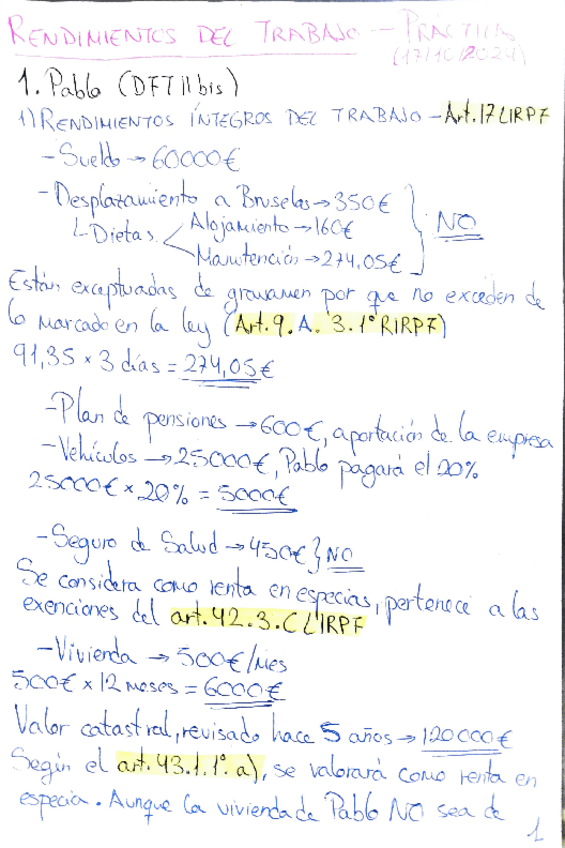 RENDIMIENTOS DEL TRABAJO — PRÁCTICA
(17/10/2024)
1. Pablo (DFT 11 bis)
1) RENDIMIENTOS ÍNTEGROS DEL TRABAJO - Art. 17 LIRPF
- Sueldo → 60000€
- Desplazamiento a Bruselas → 350€
Dietas Alojamiento → 160€ NO
Manutención → 274,05€
Están exceptuadas de gravamen por que no exceden de
lo marcado en la ley (Art. 9. A. 3. 1º RIRPF)
91,35 × 3 días = 274,05€
- Plan de pensiones → 600€, aportación de la empresa
- Vehículos → 25000€, Pablo pagará el 20%
25000€ × 20% = 5000€
- Seguro de Salud → 450€ } NO
Se considera como renta en especias, pertenece a las
exenciones del art. 42.3.C LIRPF
- Vivienda → 500€/mes
500€ × 12 meses = 6000€
Valor catastral, revisado hace 5 años → 120000€
Según el art. 43.1.1º. a), se valorará como renta en
especia. Aunque la vivienda de Pablo NO sea de
1